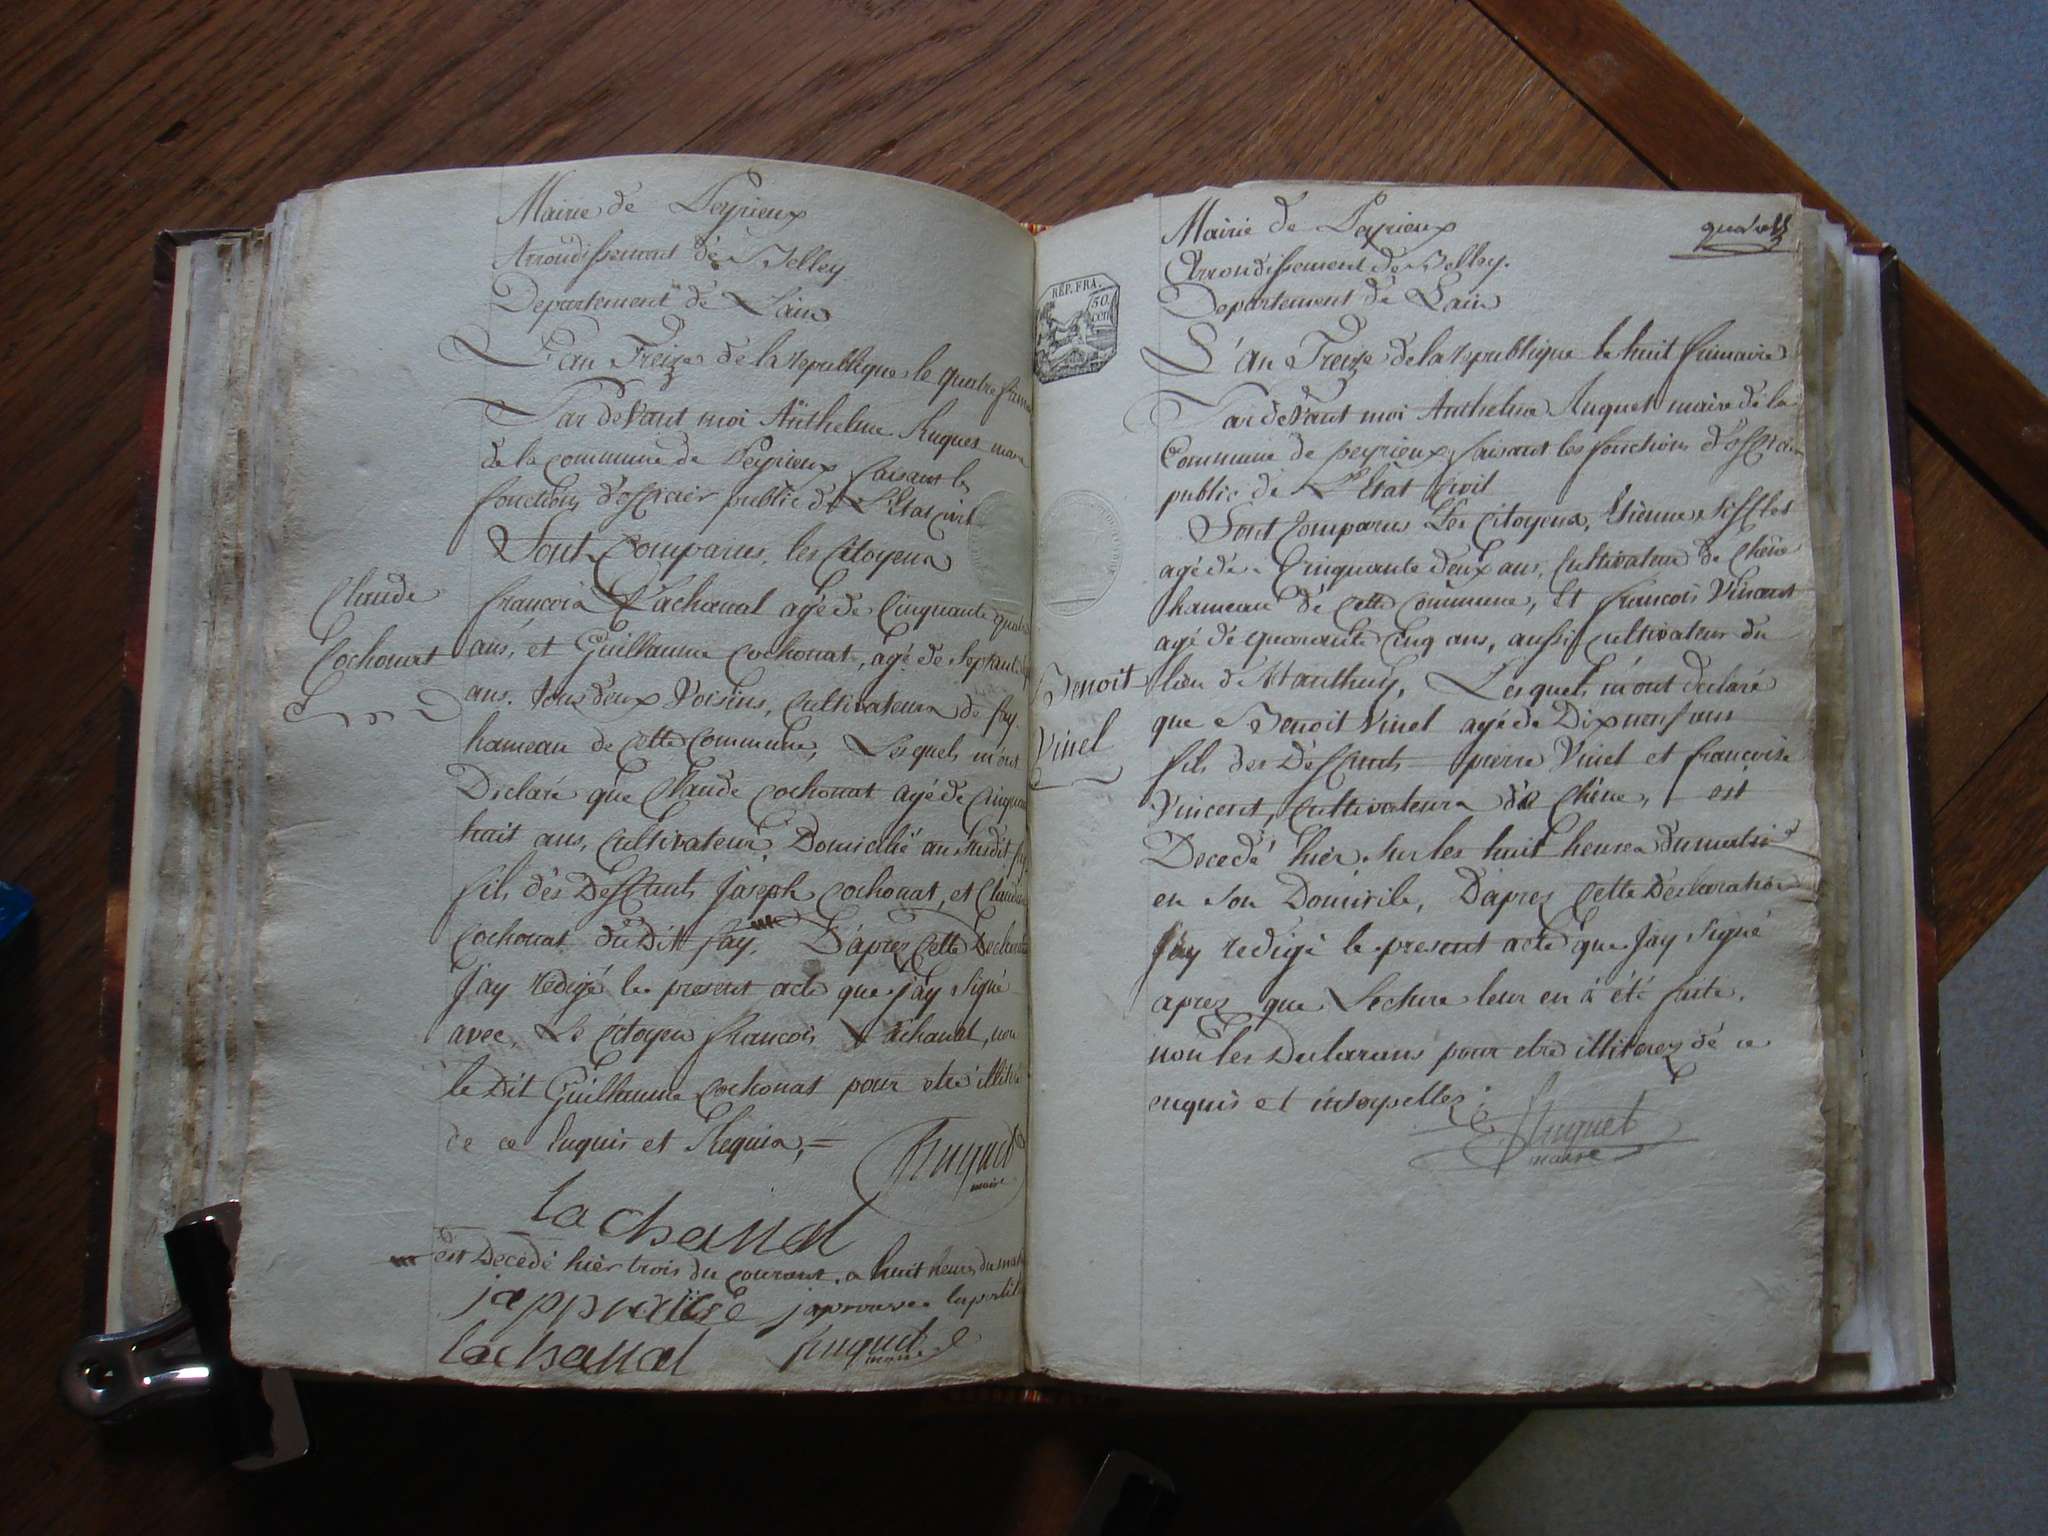 Mairie de Peyrieux
Arrondissement de Belley
Departement de Lain
L'an Treize de la republique le quatre frim
Par devant moi Anthelme Huguet maire
de la commune de Peyrieux faisant les
fonctions d'officier public de L'Etat civil
Sont Comparus, les Citoyens
Claude
Cochonat
françois Lachanal agé de Cinquante quatre
ans, et Guillaume Cochonat, agé de Septante
ans. tous deux Voisins, Cultivateurs de fay.
hameau de Cette Commune, Lesquels m'ont
Déclaré que Claude Cochonat agé de Cinquante
huit ans, Cultivateur, Domicilié au susdit fay
fils des Deffunts Joseph Cochonat, et Claudine
Cochonat du Dit fay, D'aprez Cette Declaration
Jay rédigé le present acte que Jay Signé
avec, Le Citoyen francois Lachanal, non
le Dit Guillaume Cochonat pour etre illitéré
de ce Enquis et Requis,=
Huguet
maire
Lachanal
est Decedé hier trois du courant. a huit heures du matin
japprouve japrouve lapostil
Lachanal Huguet
maire
Mairie de Peyrieux
Arrondissement de Belley.
Departement de Lain
REP. FRA.
50.
cen
L'an Treize de la republique le huit frimaire
Par devant moi Anthelme Huguet maire de la
Commune de peyrieux faisant les fonctions d'officier
public de L'Etat Civil
Sont Comparus Les Citoyens, Etienne Siffelet
agé de Cinquante deux ans, Cultivateur de Chêne
hameau de Cette Commune, Et francois Vincent
agé de quarante Cinq ans, aussi Cultivateur du
lieu d'Hauthuy, Lesquels m'ont declaré
Benoit
Vinel
que Benoit Vinel agé de Dix neuf ans
fils des Deffunts pierre Vinel et francoise
Vincent, Cultivateurs de Chêne, est
Decedé hier sur les huit heures du matin
en son Domicile, D'aprez Cette Declaration
Jay redigé le present acte que Jay Signé
aprez que Lecture leur en à été faite.
non les Declarans pour etre illiterez de ce
enquis et interpellez.
Huguet
maire